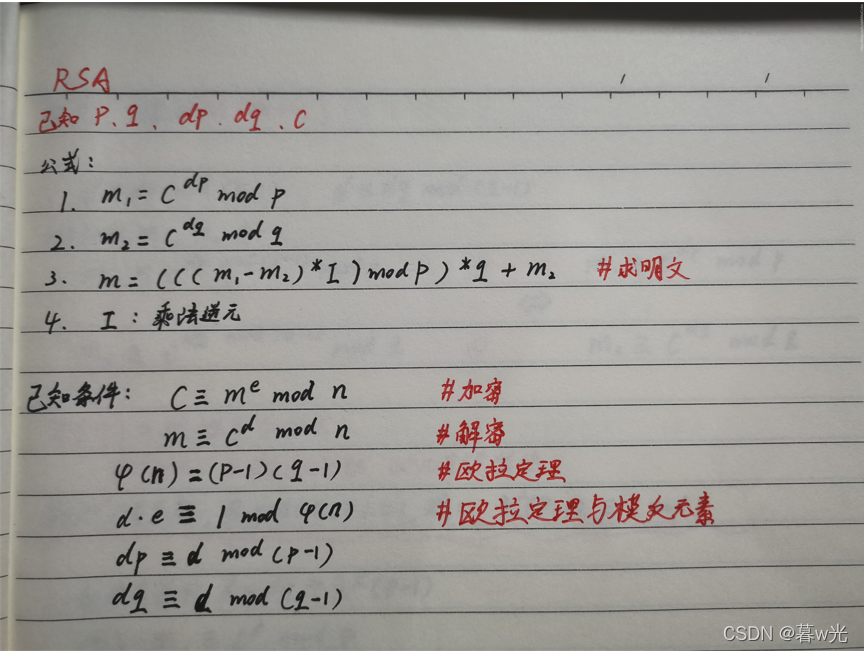 RSA
已知 P、q、dp、dq、C
公式：
1. m₁ = C^dp mod p
2. m₂ = C^dq mod q
3. m = (((m₁-m₂)*I)mod p)*q + m₂ #求明文
4. I：乘法逆元
已知条件： C ≡ m^e mod n #加密
m ≡ C^d mod n #解密
φ(n) = (P-1)(q-1) #欧拉定理
d·e ≡ 1 mod φ(n) #欧拉定理与模反元素
dp ≡ d mod (p-1)
dq ≡ d mod (q-1)
CSDN @暮w光